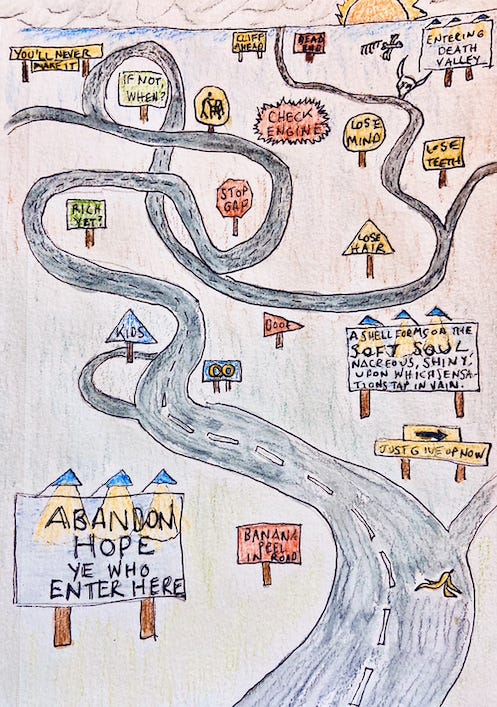 YOU'LL NEVER
MAKE IT
CLIFF
AHEAD
DEAD
END
ENTERING
DEATH
VALLEY
IF NOT,
WHEN?
CHECK
ENGINE
LOSE
MIND
LOSE
TEETH
RICH
YET?
STOP
GAP
LOSE
HAIR
KIDS
DOOF
A SHELL FORMS ON THE
SOFT SOUL
NACREOUS, SHINY.
UPON WHICH SENSA-
TIONS TAP IN VAIN.
JUST GIVE UP NOW
ABANDON
HOPE
YE WHO
ENTER HERE
BANANA
PEEL
IN ROAD